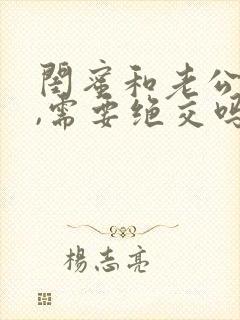 閨蜜和老公
,需要绝交吗
楊志亮